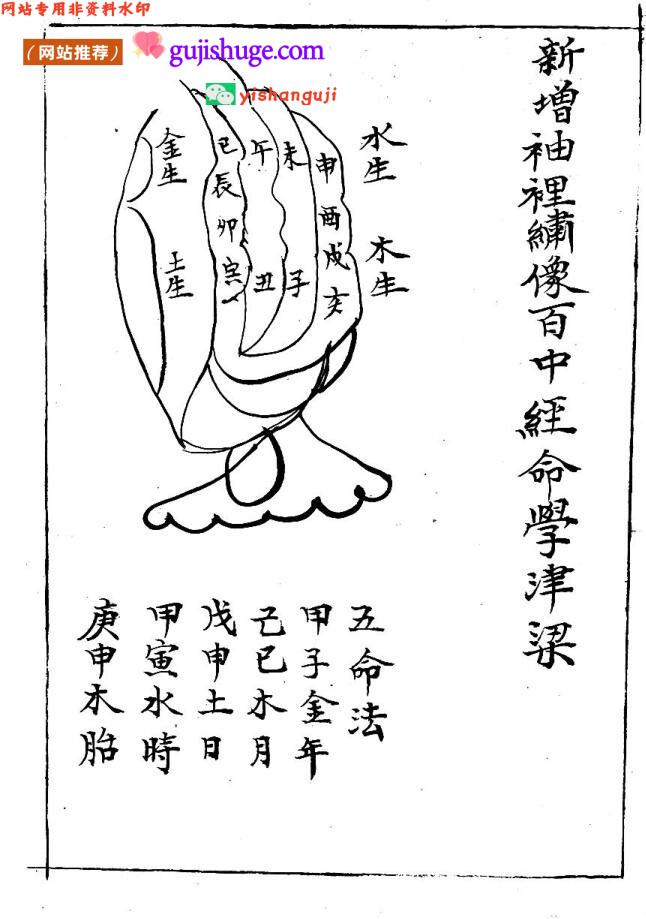 网站专用非资料水印
（网站推荐）
gujishuge.com
yishanguji
新增袖裡繡像百中經命學津梁
水生
木生
申酉戌亥
未
子
午
丑
巳辰卯寅
金生
土生
五命法
甲子金年
己巳木月
戊申土日
甲寅水時
庚申木胎